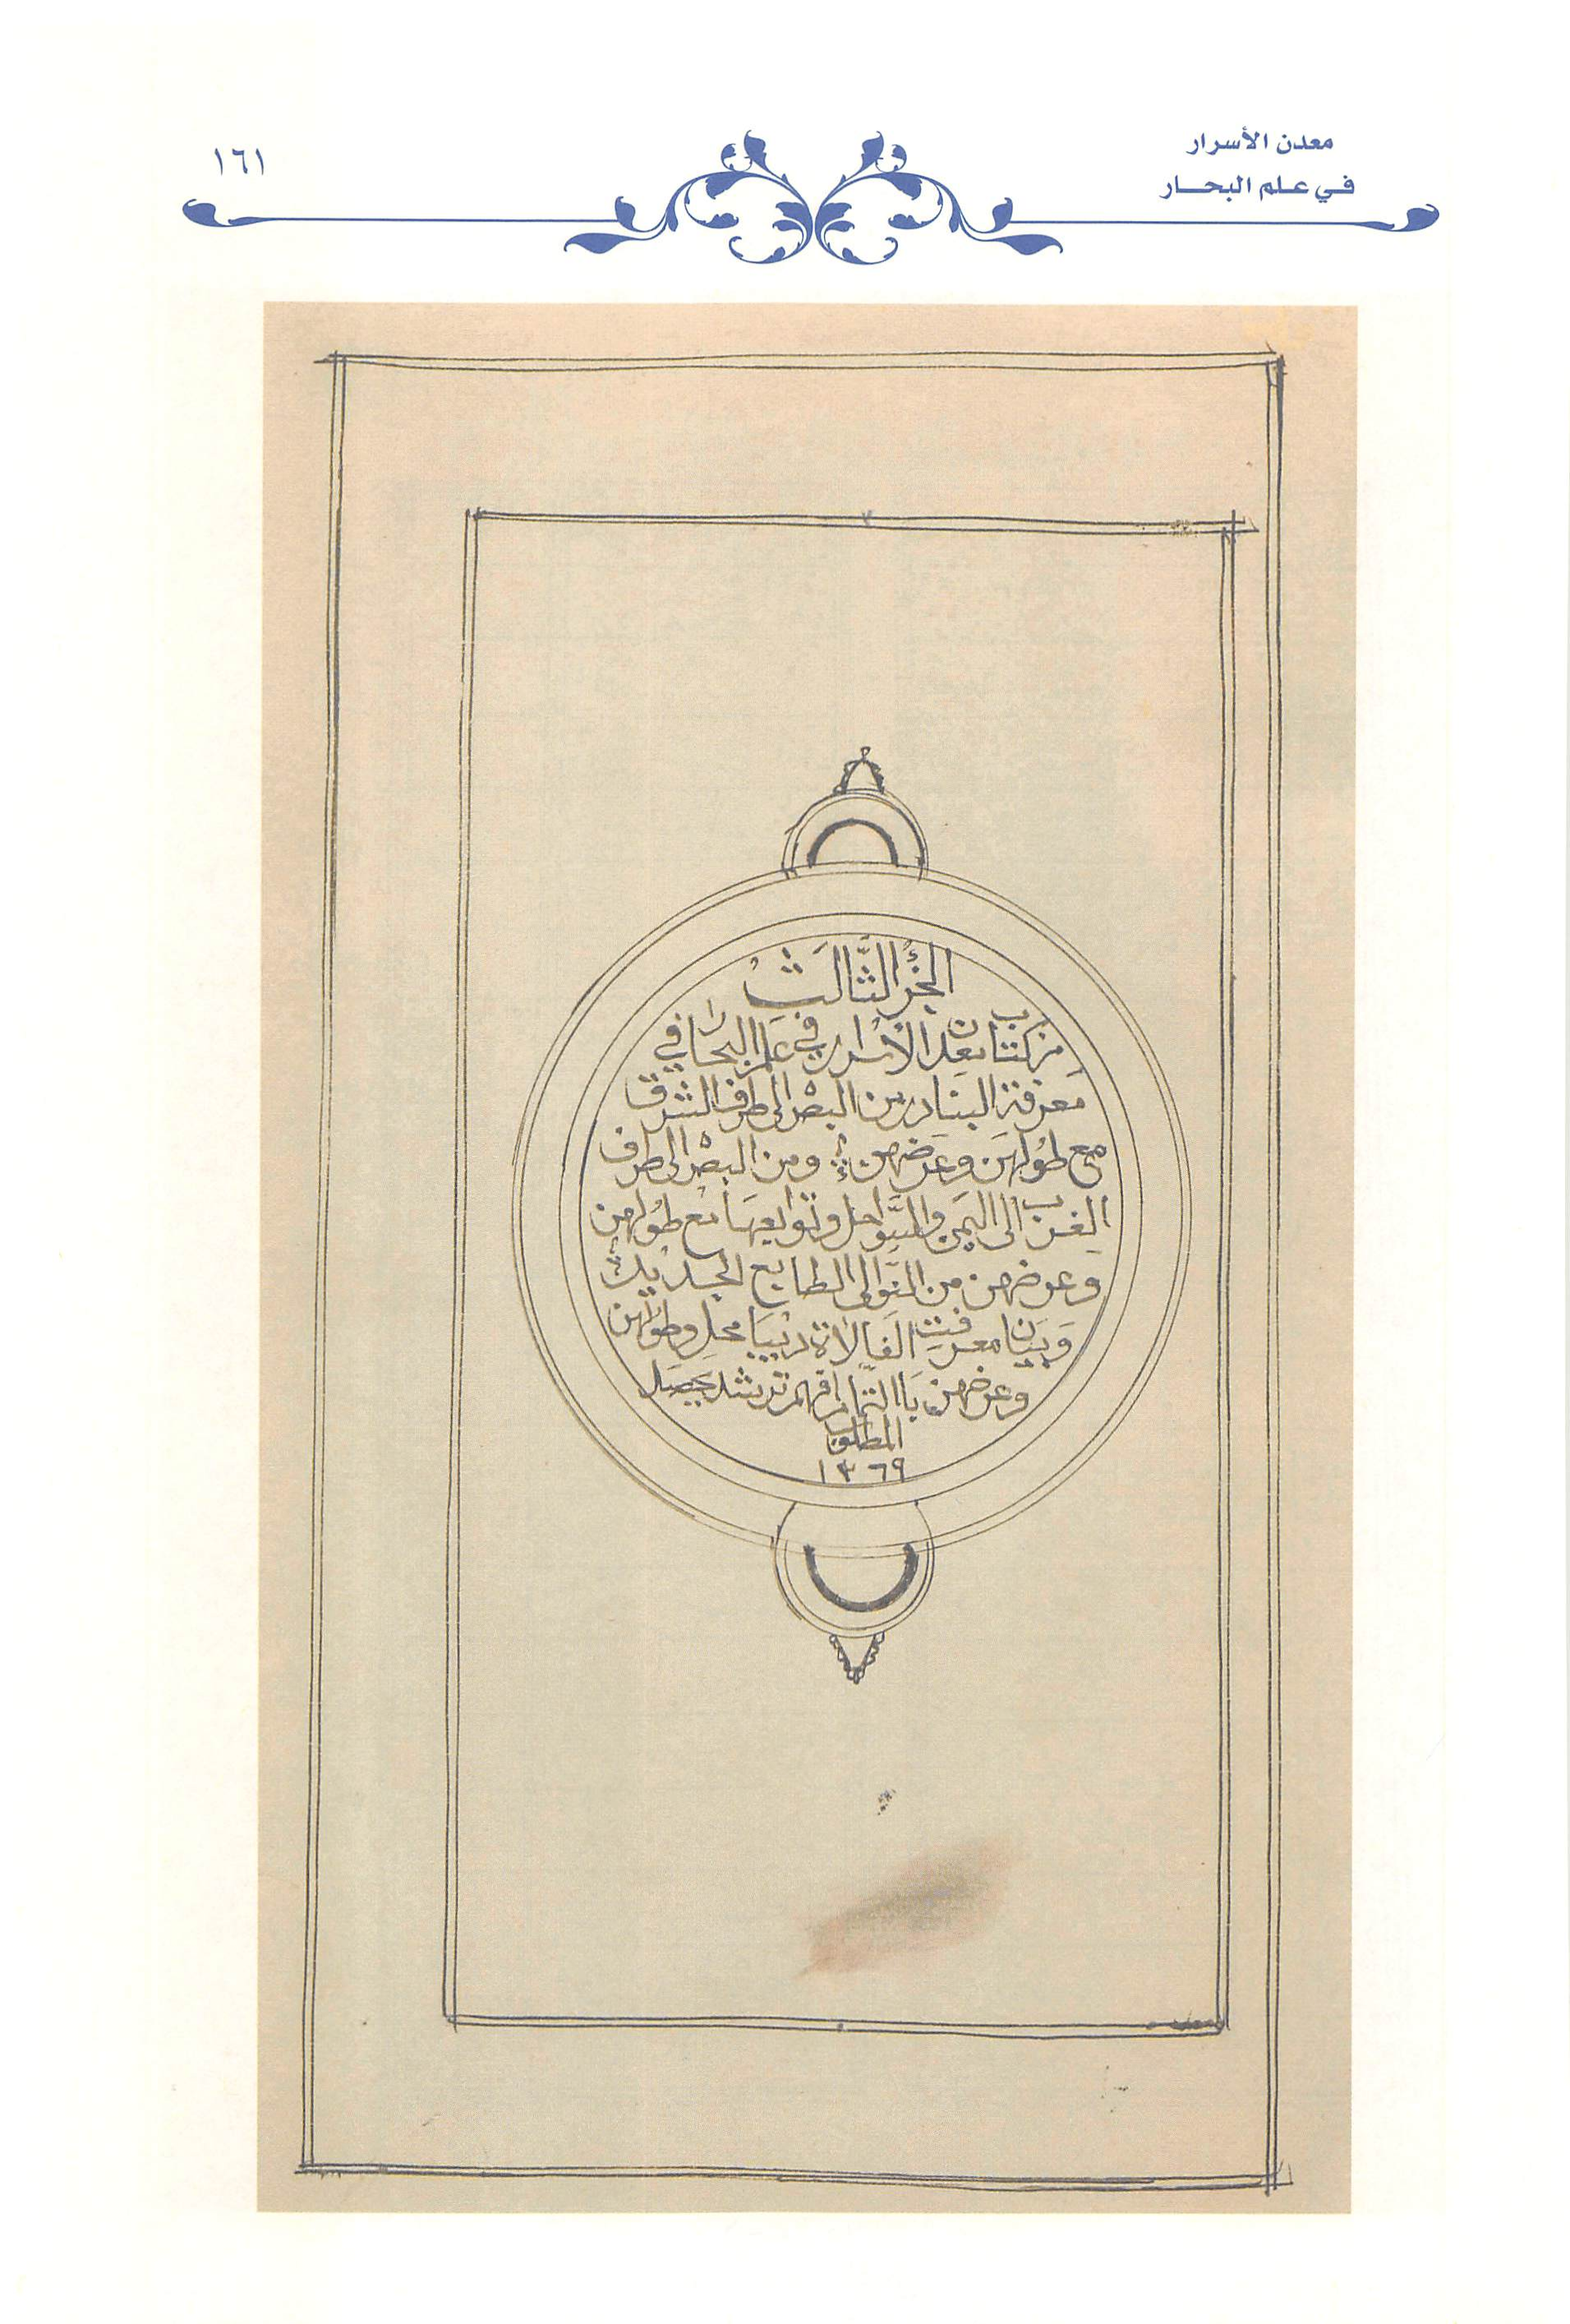 معدن الأسرار
في علم البحار
١٦١
الجزء الثَّالَثْ
من كتاب معدن الأسرار في علم البحار في
معرفة البنادر من البصره الى طرف الشرق
مع طُولهَن وعَرضهن ومن البصره الى طرف
الغرب الى اليمَن والسَّواحل وتوابعهَا مع طُولهن
وعرضهن من النَّوالى الطابع الجديد
وَبيَان معرفت الفَالاة دريبَا محل وطولهن
وعرضهن بَا التمام افهم ترشد يحصَل
المطلوب
١٣٦٩